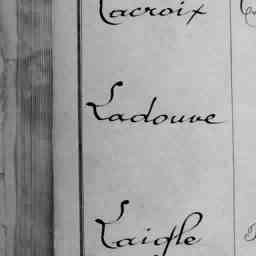 Lacroix
Ladouve
Laigle